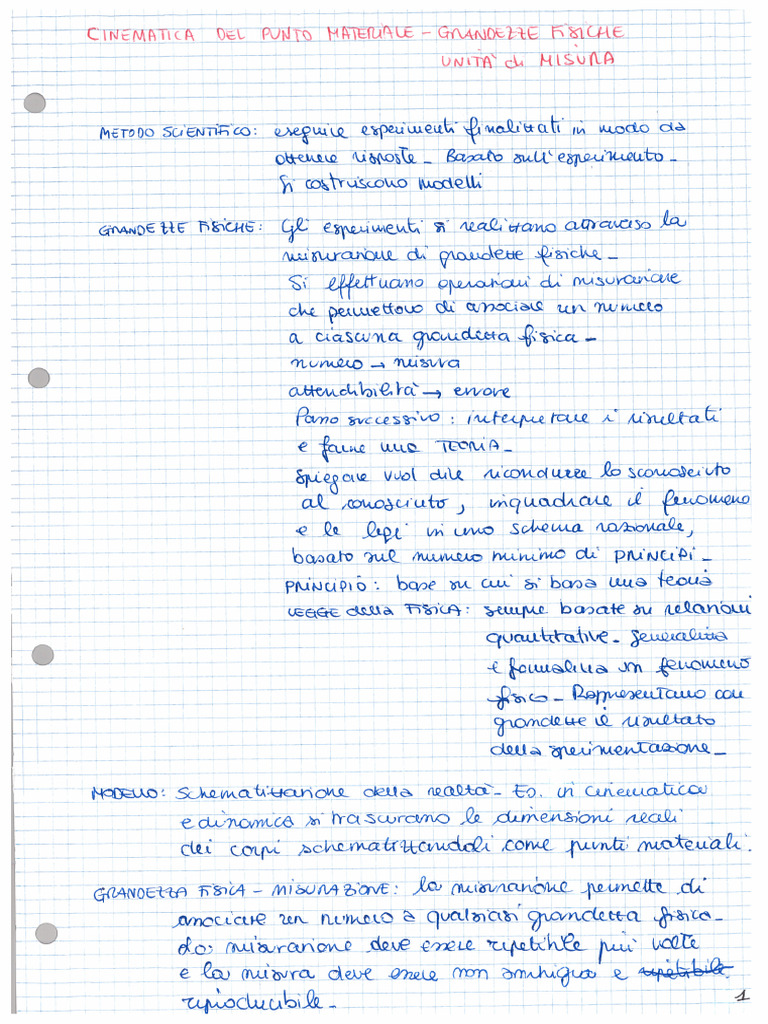 CINEMATICA DEL PUNTO MATERIALE - GRANDEZZE FISICHE
UNITÀ di MISURA
METODO SCIENTIFICO: eseguire esperimenti finalizzati in modo da
ottenere risposte - Basato sull'esperimento -
Si costruiscono modelli
GRANDEZZE FISICHE: Gli esperimenti si realizzano attraverso la
misurazione di grandezze fisiche -
Si effettuano operazioni di misurazione
che permettono di associare un numero
a ciascuna grandezza fisica -
numero → misura
attendibilità → errore
Passo successivo: interpretare i risultati
e farne una TEORIA -
Spiegare vuol dire ricondurre lo sconosciuto
al conosciuto, inquadrare il fenomeno
e le leggi in uno schema razionale,
basato sul numero minimo di PRINCIPI -
PRINCIPIO: base su cui si basa una teoria
LEGGE della FISICA: sempre basate su relazioni
quantitative - Generalizza
e formalizza un fenomeno
fisico - Rappresentano con
grandezze il risultato
della sperimentazione -
MODELLO: Schematizzazione della realtà - Es. in cinematica
e dinamica si trascurano le dimensioni reali
dei corpi schematizzandoli come punti materiali.
GRANDEZZA FISICA - MISURAZIONE: la misurazione permette di
associare un numero a qualsiasi grandezza fisica -
La misurazione deve essere ripetibile più volte
e la misura deve essere non ambigua e ripetibile
riproducibile -
1